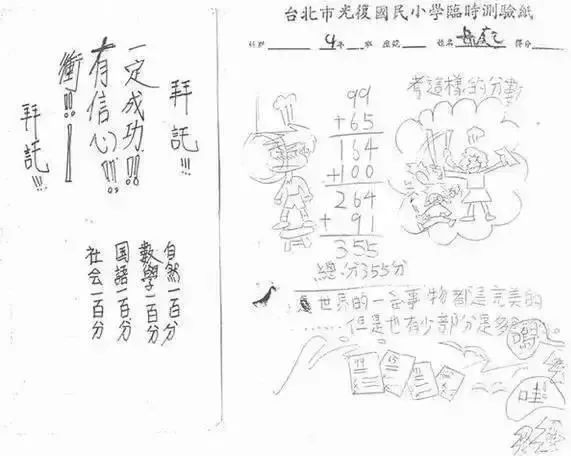 拜託!!!
一定成功!!
有信心!!!
衝!!!
拜託!!!
自然一百分
數學一百分
国語一百分
社会一百分
台北市光復國民小學臨時測驗紙
科別 4年 班 座號 姓名 得分
考這樣的分數
99
+65
164
+100
264
+ 91
355
總分355分
世界的一些事物都是完美的
……但是也有少部分是
嗚
哇